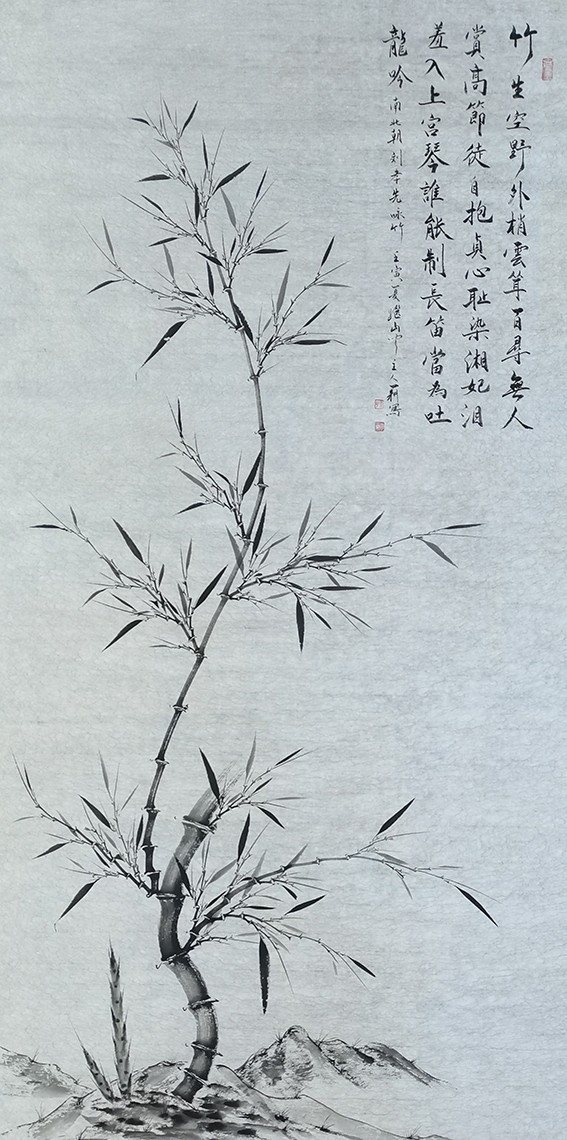 竹生空野外梢雲聳百尋無人
賞高節徒自抱貞心耻染湘妃泪
羞入上宮琴誰能制長笛當為吐
龍吟 南北朝刘孝先咏竹 壬寅夏 山 主人 寫